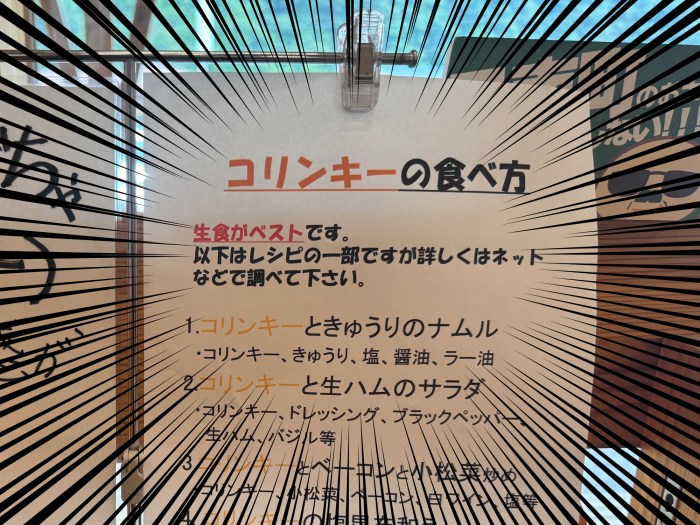 コリンキーの食べ方
生食がベストです。
以下はレシピの一部ですが詳しくはネット
などで調べて下さい。
1.コリンキーときゅうりのナムル
・コリンキー、きゅうり、塩、醤油、ラー油
2.コリンキーと生ハムのサラダ
・コリンキー、ドレッシング、ブラックペッパー、
生ハム、バジル等
3.コリンキーとベーコンと小松菜炒め
・コリンキー、小松菜、ベーコン、白ワイン、塩等
4.コリンキーの塩昆布和え
のお
ない!!!